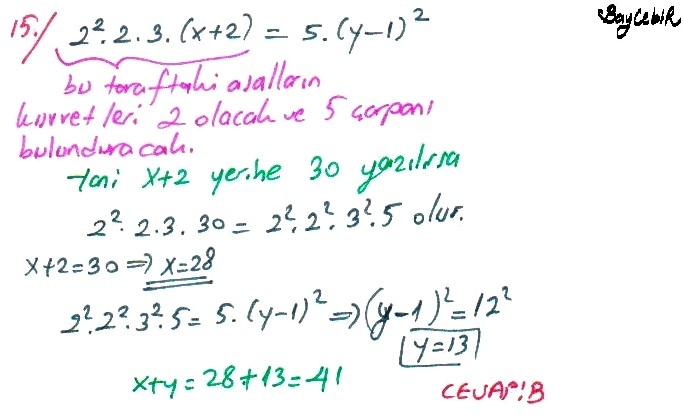 BayCebiR
15./ 2².2.3.(x+2) = 5.(y-1)²
bu taraftaki asalların
kuvvetleri 2 olacak ve 5 çarpanı
bulunduracak.
Yani x+2 yerine 30 yazılırsa
2².2.3.30 = 2².2².3².5 olur.
x+2=30 ⇒ x=28
2².2².3².5 = 5.(y-1)² ⇒ (y-1)² = 12²
y=13
x+y = 28+13 = 41
CEVAP: B